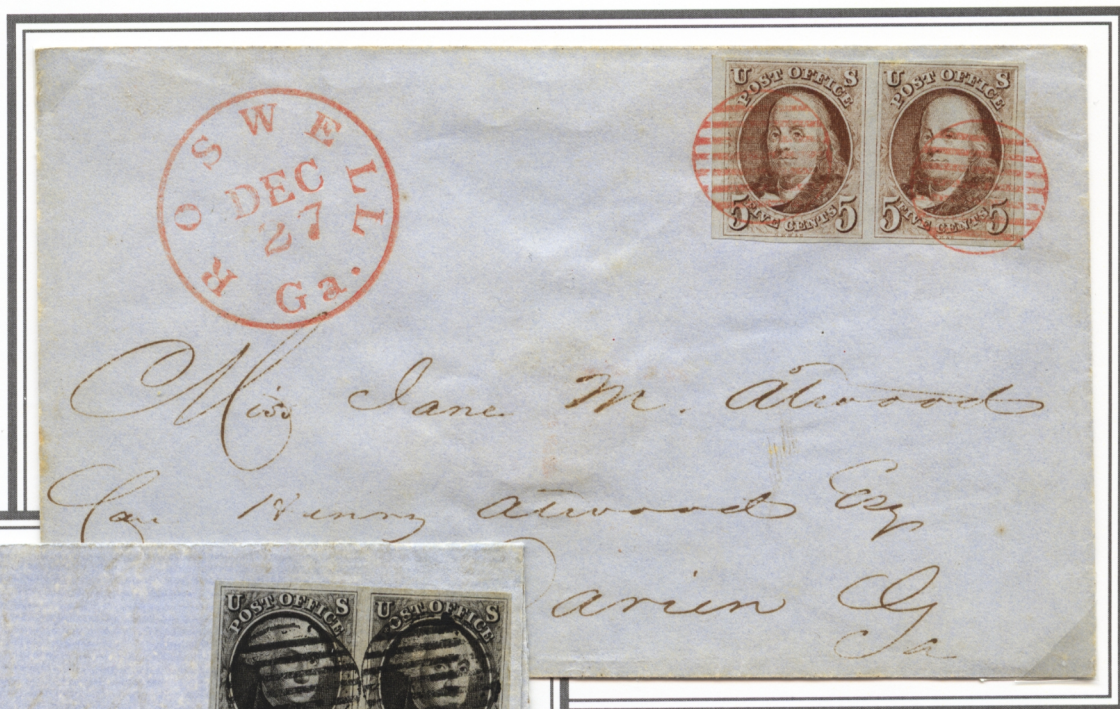 ROSWELL Ga.
DEC
27
U POST OFFICE S
5 FIVE CENTS 5
U POST OFFICE S
5 FIVE CENTS 5
Miss Jane M. Atwood
Car Henry Atwood Esq
Darien Ga
Ga
U POST OFFICE S
U POST OFFICE S